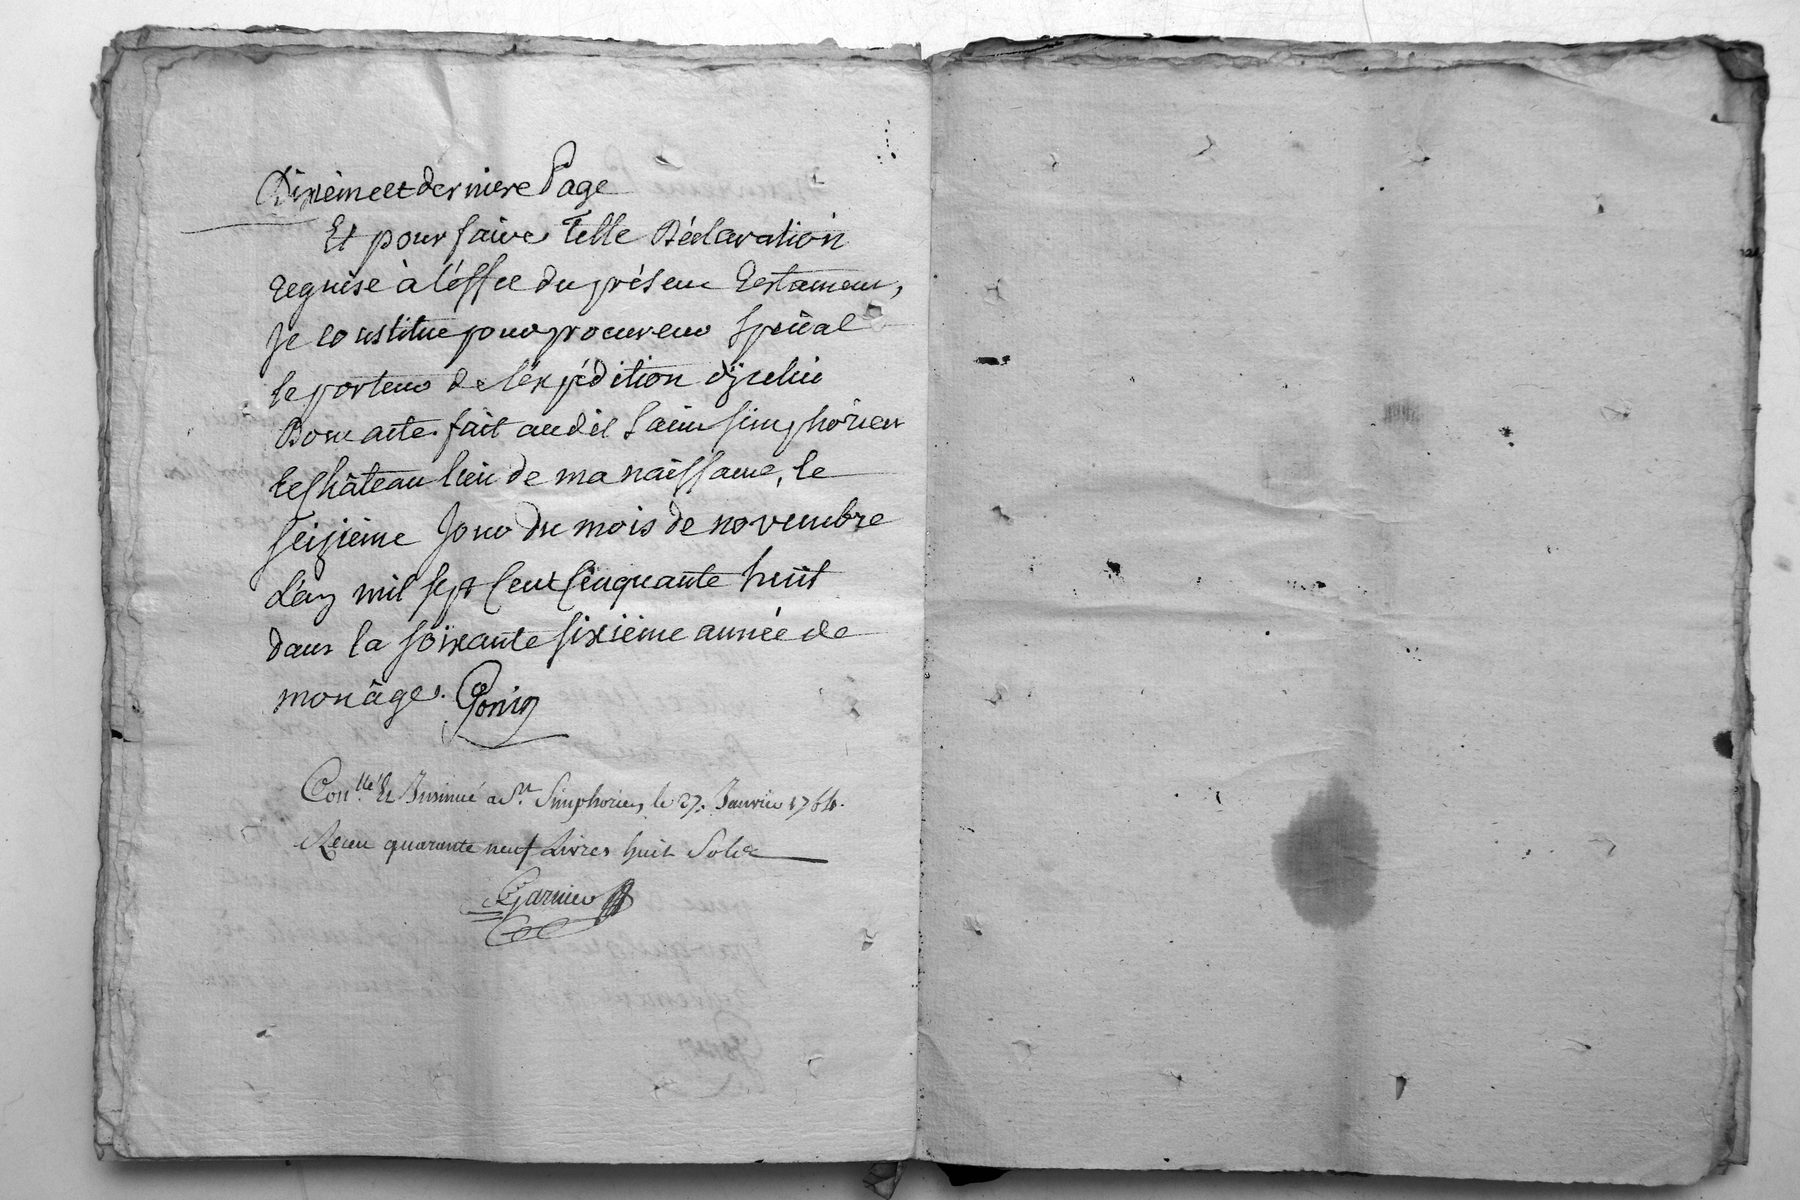 Dixième et derniere Page
Et pour faire Telle Déclaration
requise à l'éffet du présent Testament,
Je constitue pour procureur Spécial
le porteur de l'éxpédition d'jcelui
Dont acte. fait audit Saint Simphorien
le Château lieu de ma naissance, le
seizième Jour du mois de novembre
l'an mil sept Cent Cinquante huit
dans la soixante sixième année de
mon âge. Gonin
Con.llé Et Insinué a St. Simphorien, le 27. Janvier 1764.
Receu quarante neuf Livres huit Sols
Garnier